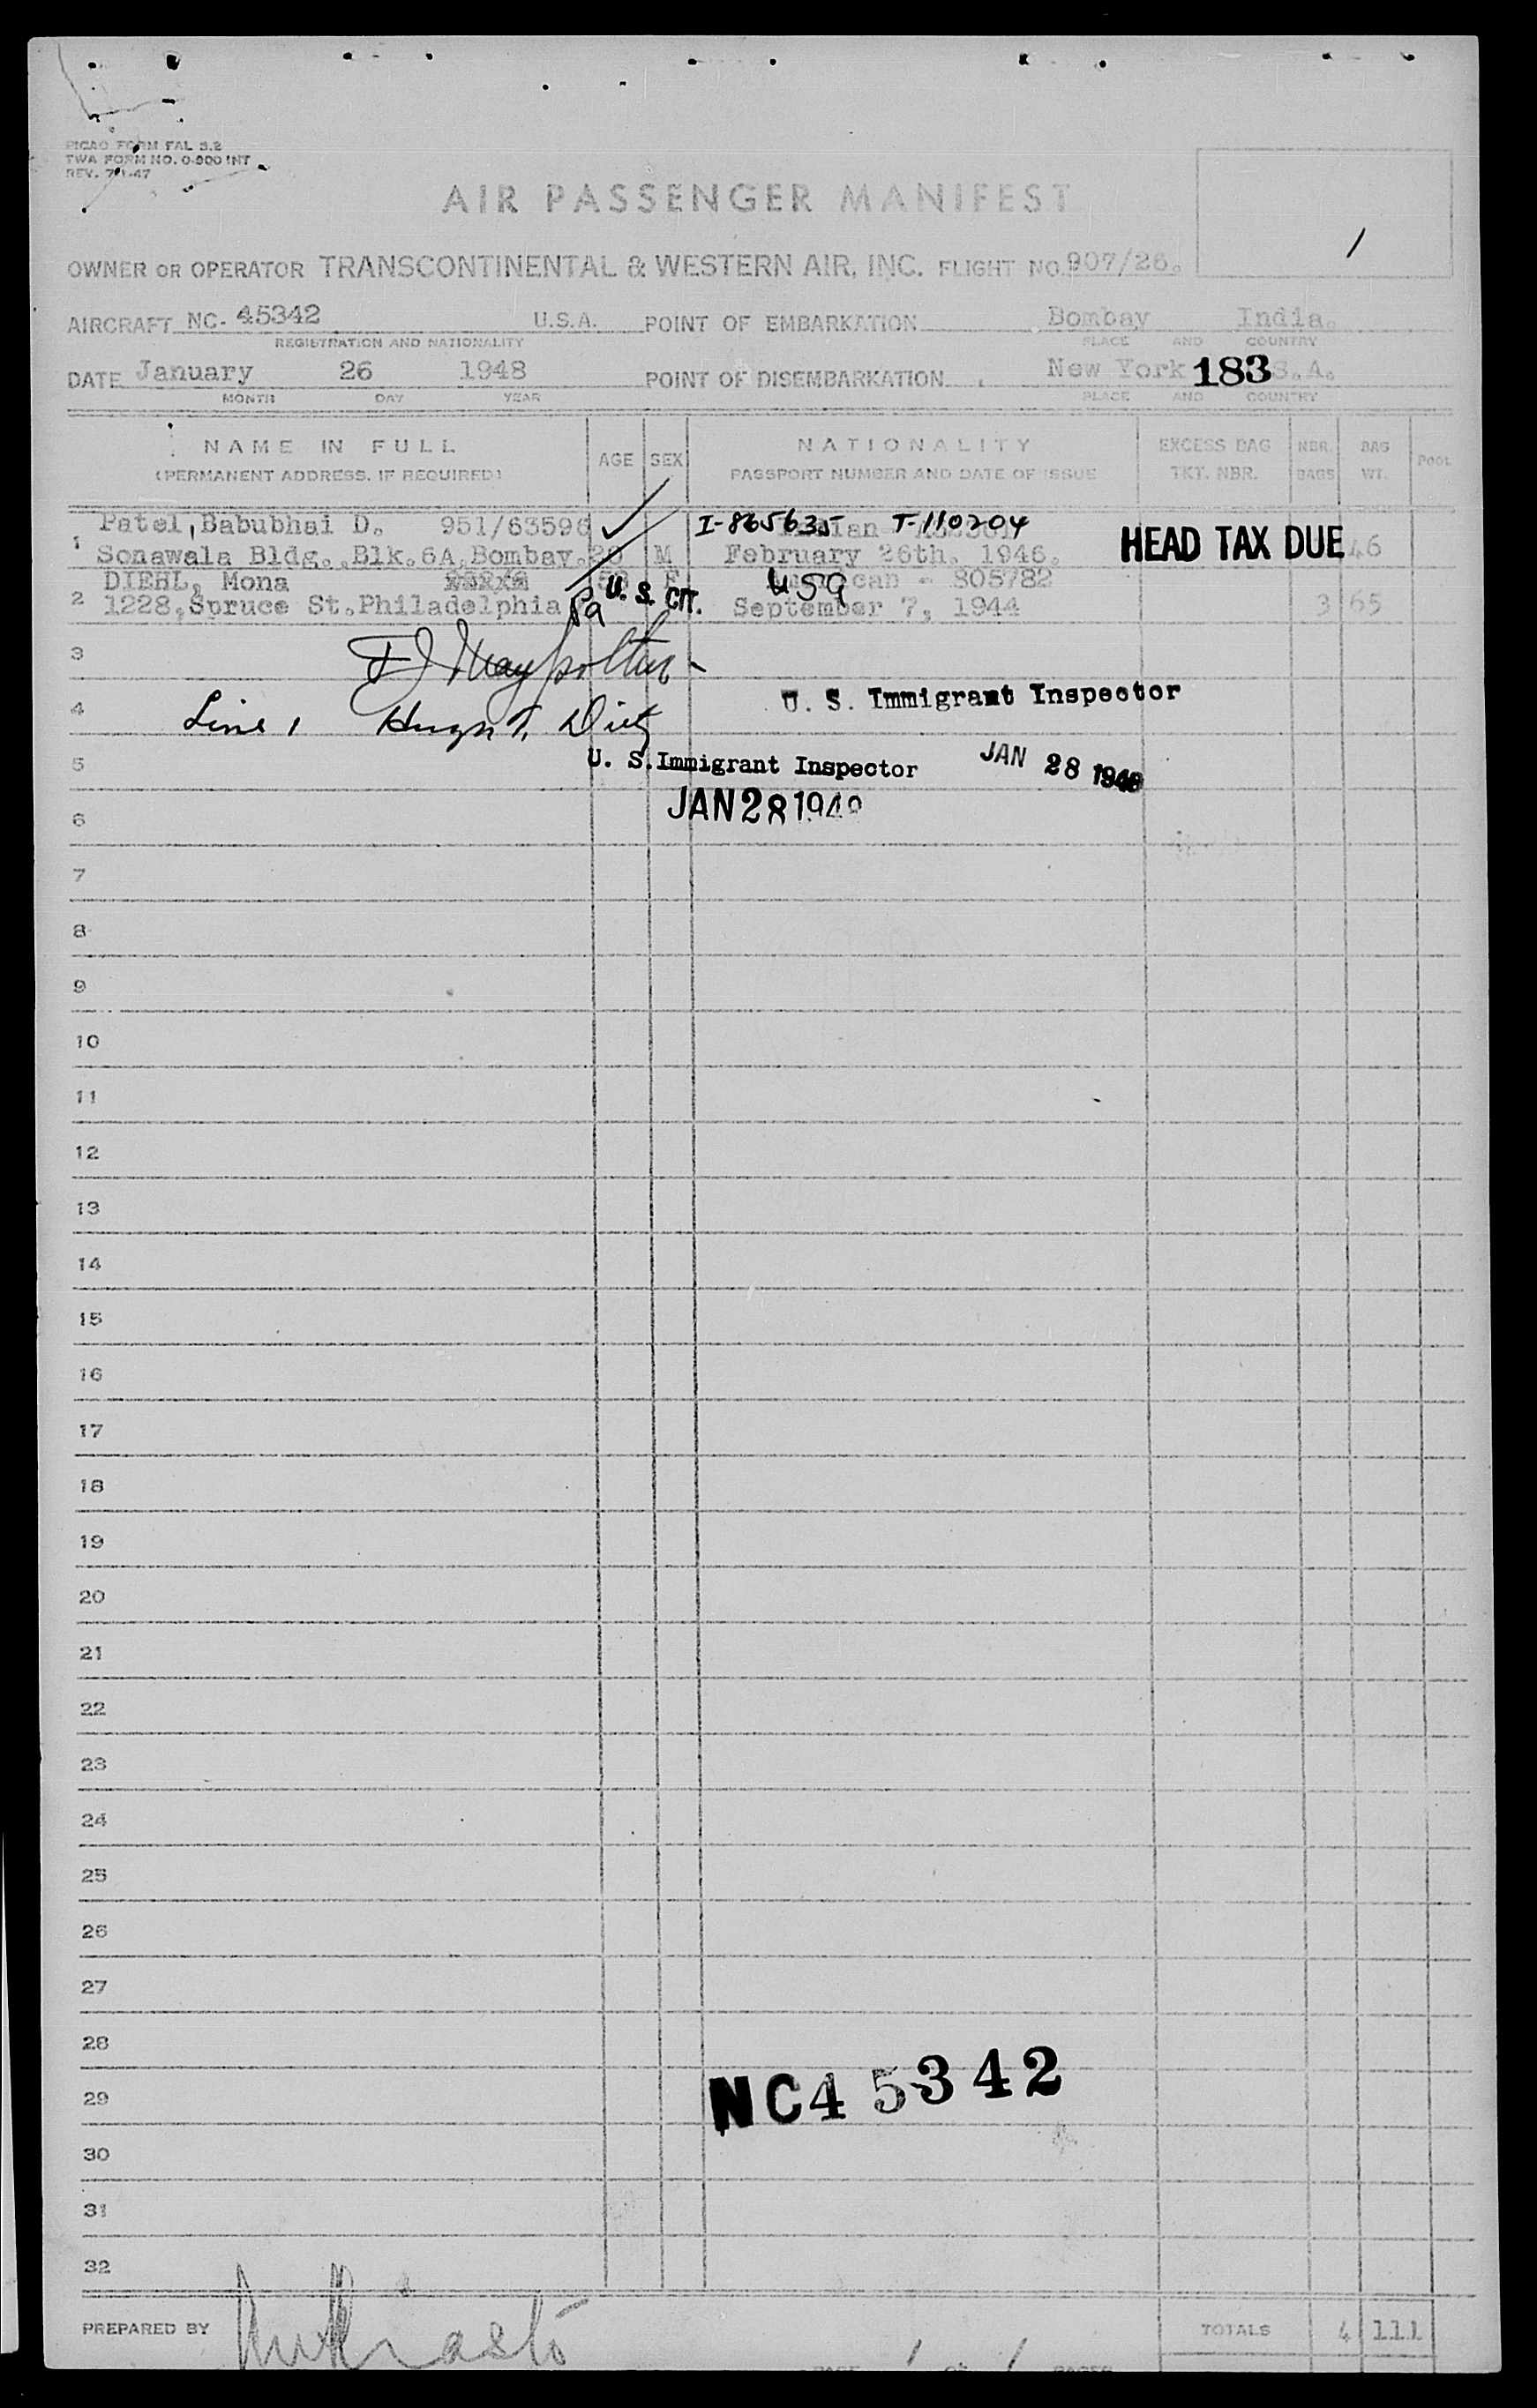 PICAO FORM FAL 3.2
TWA FORM NO. 0-900 INT
REV. 7-1-47
AIR PASSENGER MANIFEST
1
OWNER OR OPERATOR TRANSCONTINENTAL & WESTERN AIR, INC. FLIGHT NO. 907/26.
AIRCRAFT NC- 45342 U.S.A. POINT OF EMBARKATION Bombay India.
REGISTRATION AND NATIONALITY PLACE AND COUNTRY
DATE January 26 1948 POINT OF DISEMBARKATION New York 183 S.A.
MONTH DAY YEAR PLACE AND COUNTRY
NAME IN FULL AGE SEX NATIONALITY EXCESS BAG NBR. BAG POOL
(PERMANENT ADDRESS, IF REQUIRED) PASSPORT NUMBER AND DATE OF ISSUE TKT. NBR. BAGS WT.
Patel, Babubhai D. 951/63596 I-865635 T-110204
1 Sonawala Bldg., Blk. 6A, Bombay. M February 26th, 1946. HEAD TAX DUE 46
DIEHL, Mona F USA 805782
2 1228, Spruce St. Philadelphia Pa U. S. CIT. September 7, 1944 3 65
3
U. S. Immigrant Inspector
4 Line 1 Hugh T. Dietz
5 U. S. Immigrant Inspector JAN 28 1948
6 JAN 28 1948
7
8
9
10
11
12
13
14
15
16
17
18
19
20
21
22
23
24
25
26
27
28
NC45342
29
30
31
32
PREPARED BY TOTALS 4 111
PAGE 1 OF 1 PAGES